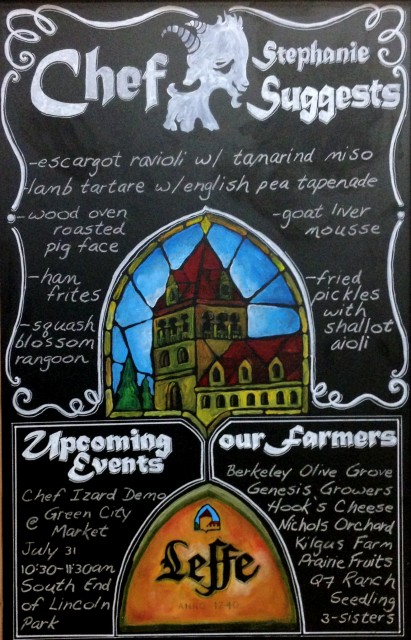 Chef Stephanie Suggests
-escargot ravioli w/ tamarind miso
-lamb tartare w/english pea tapenade
-wood oven
roasted
pig face
-ham
frites
-squash
blossom
rangoon
-goat liver
mousse
-fried
pickles
with
shallot
aioli
Upcoming
Events
Chef Izard Demo
@ Green City
Market
July 31
10:30-11:30am
South End
of Lincoln
Park
our Farmers
Berkeley Olive Grove
Genesis Growers
Hook's Cheese
Nichols Orchard
Kilgus Farm
Prairie Fruits
Q7 Ranch
Seedling
3-sisters
Leffe
ANNO 1240